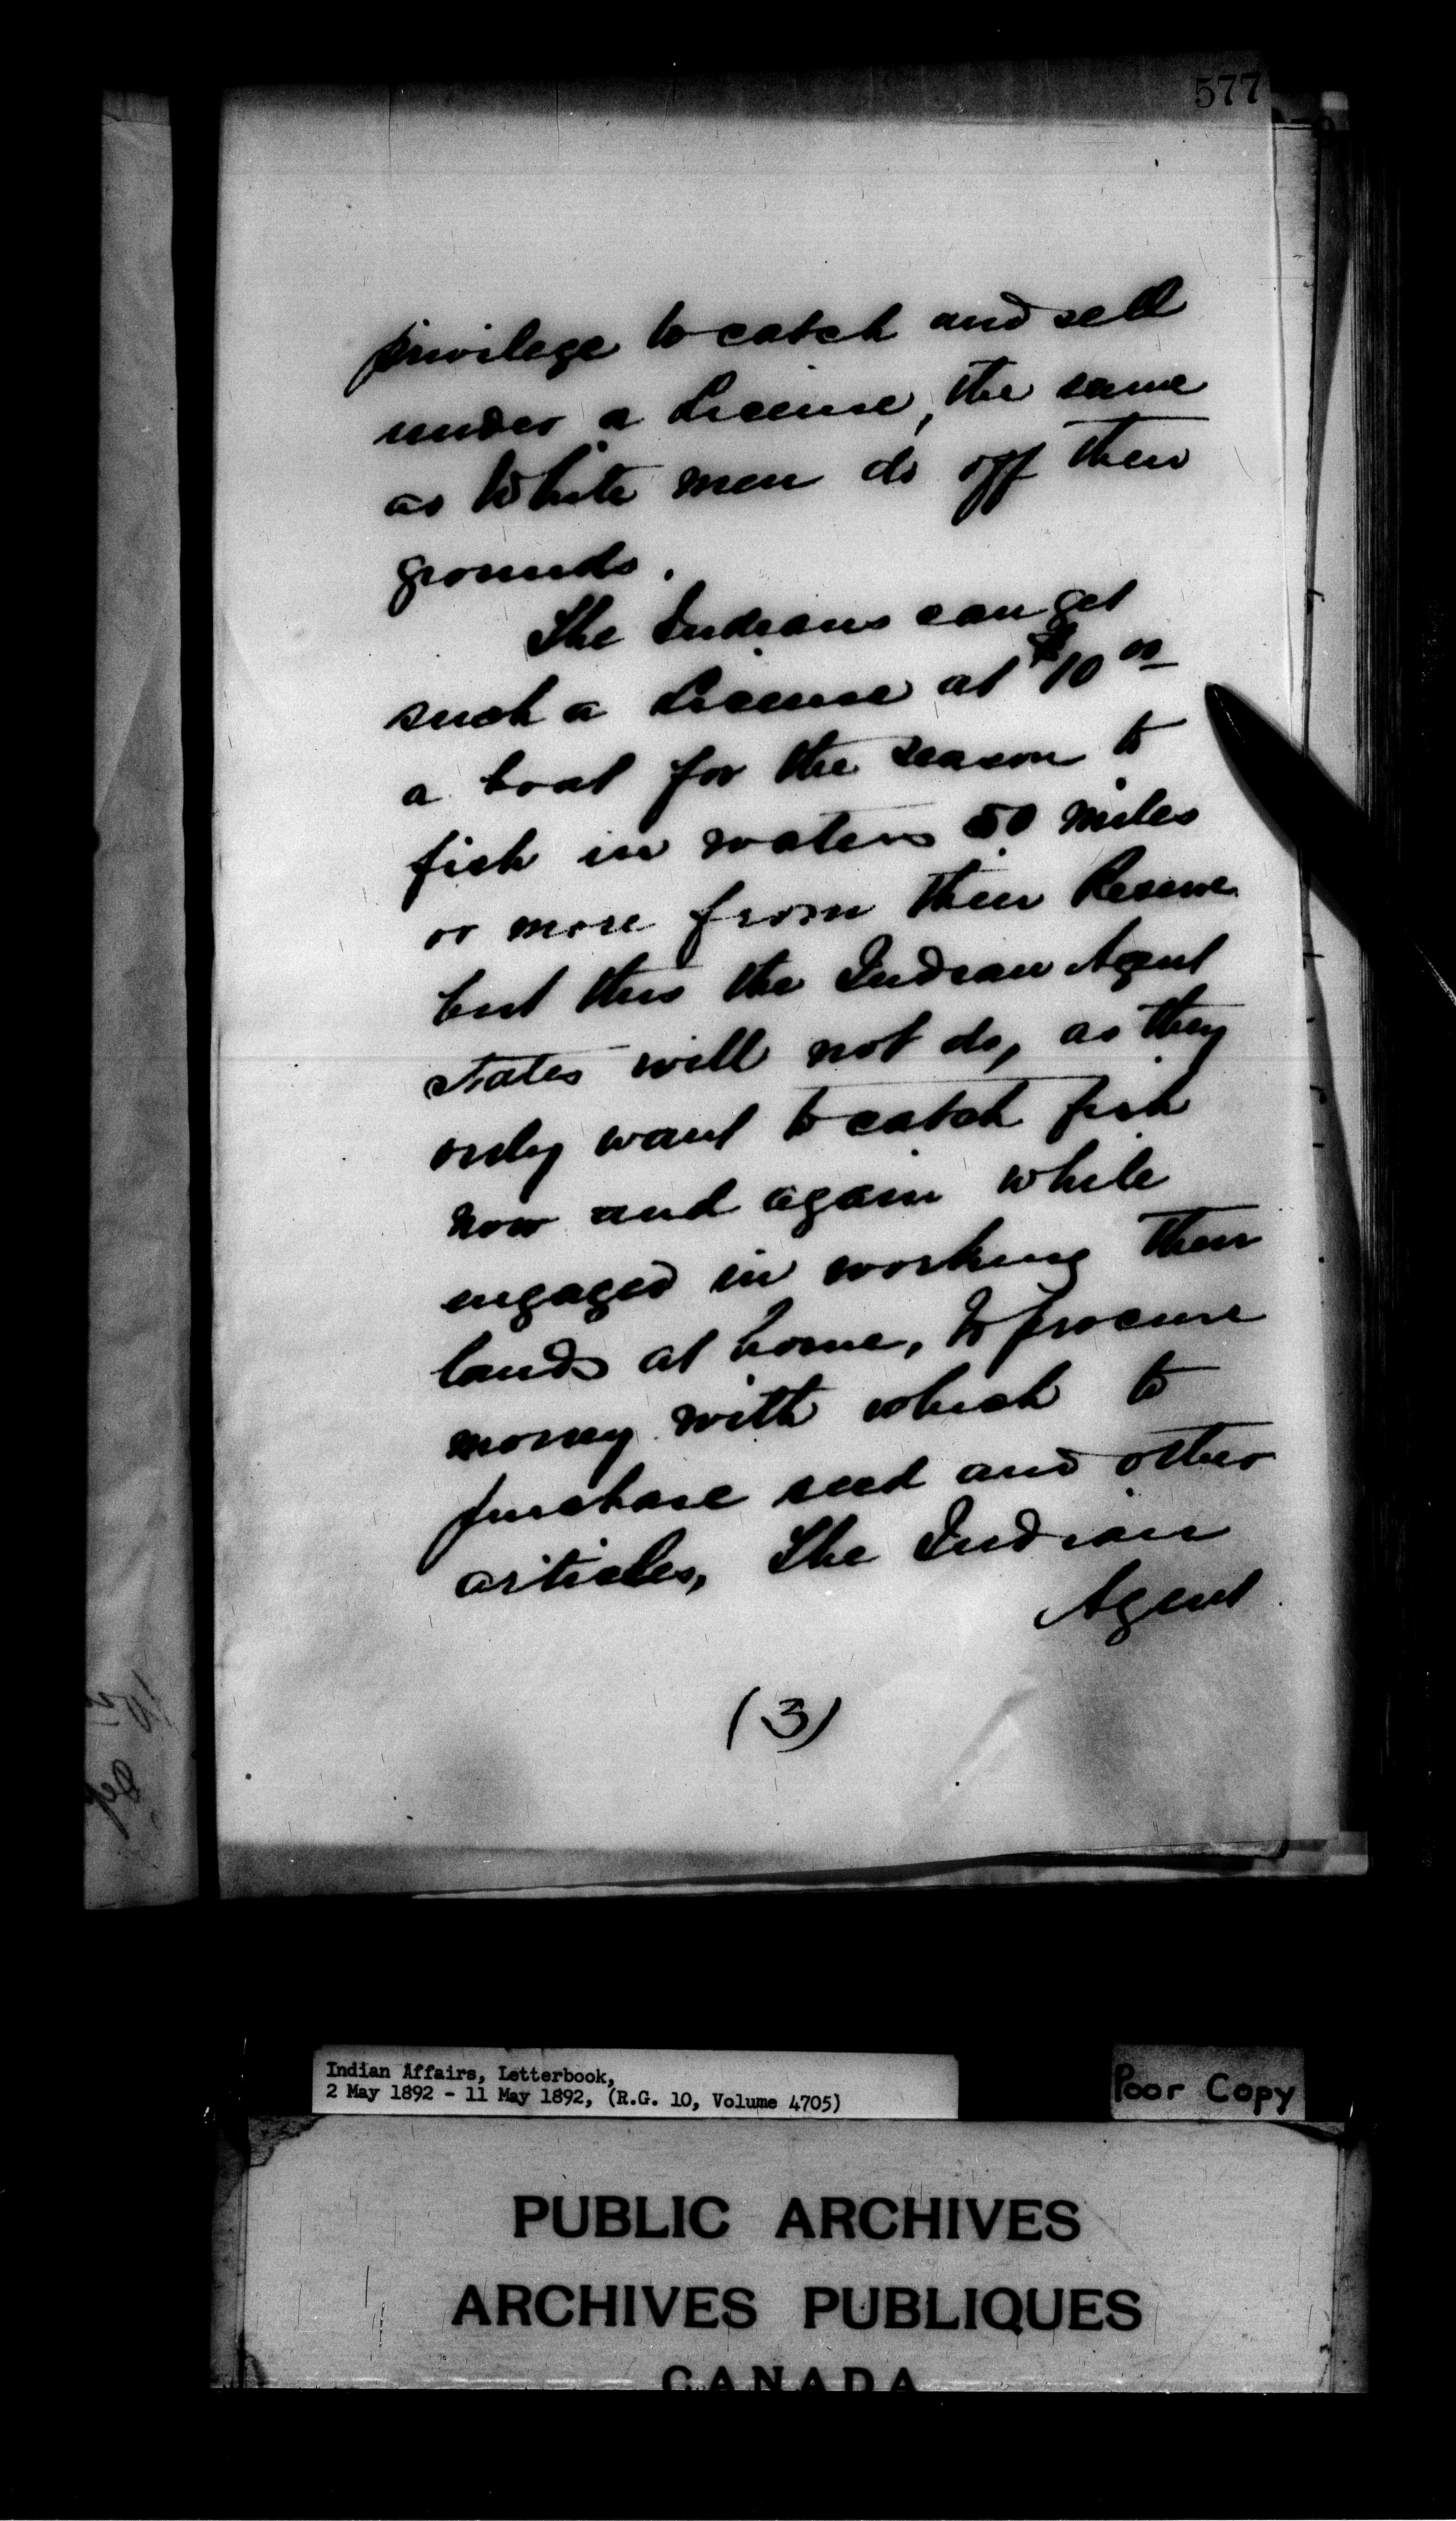 577
privilege to catch and sell
under a License, the same
as White men do off their
grounds.
The Indians can get
such a License at $10 00
a boat for the season to
fish in waters 50 miles
or more from their Reserve
but this the Indian Agent
states will not do, as they
only want to catch fish
now and again while
engaged in working their
lands at home, to procure
money with which to
purchase seed and other
articles, The Indian
Agent
(3)
Indian Affairs, Letterbook,
2 May 1892 - 11 May 1892, (R.G. 10, Volume 4705)
Poor Copy
PUBLIC ARCHIVES
ARCHIVES PUBLIQUES
CANADA